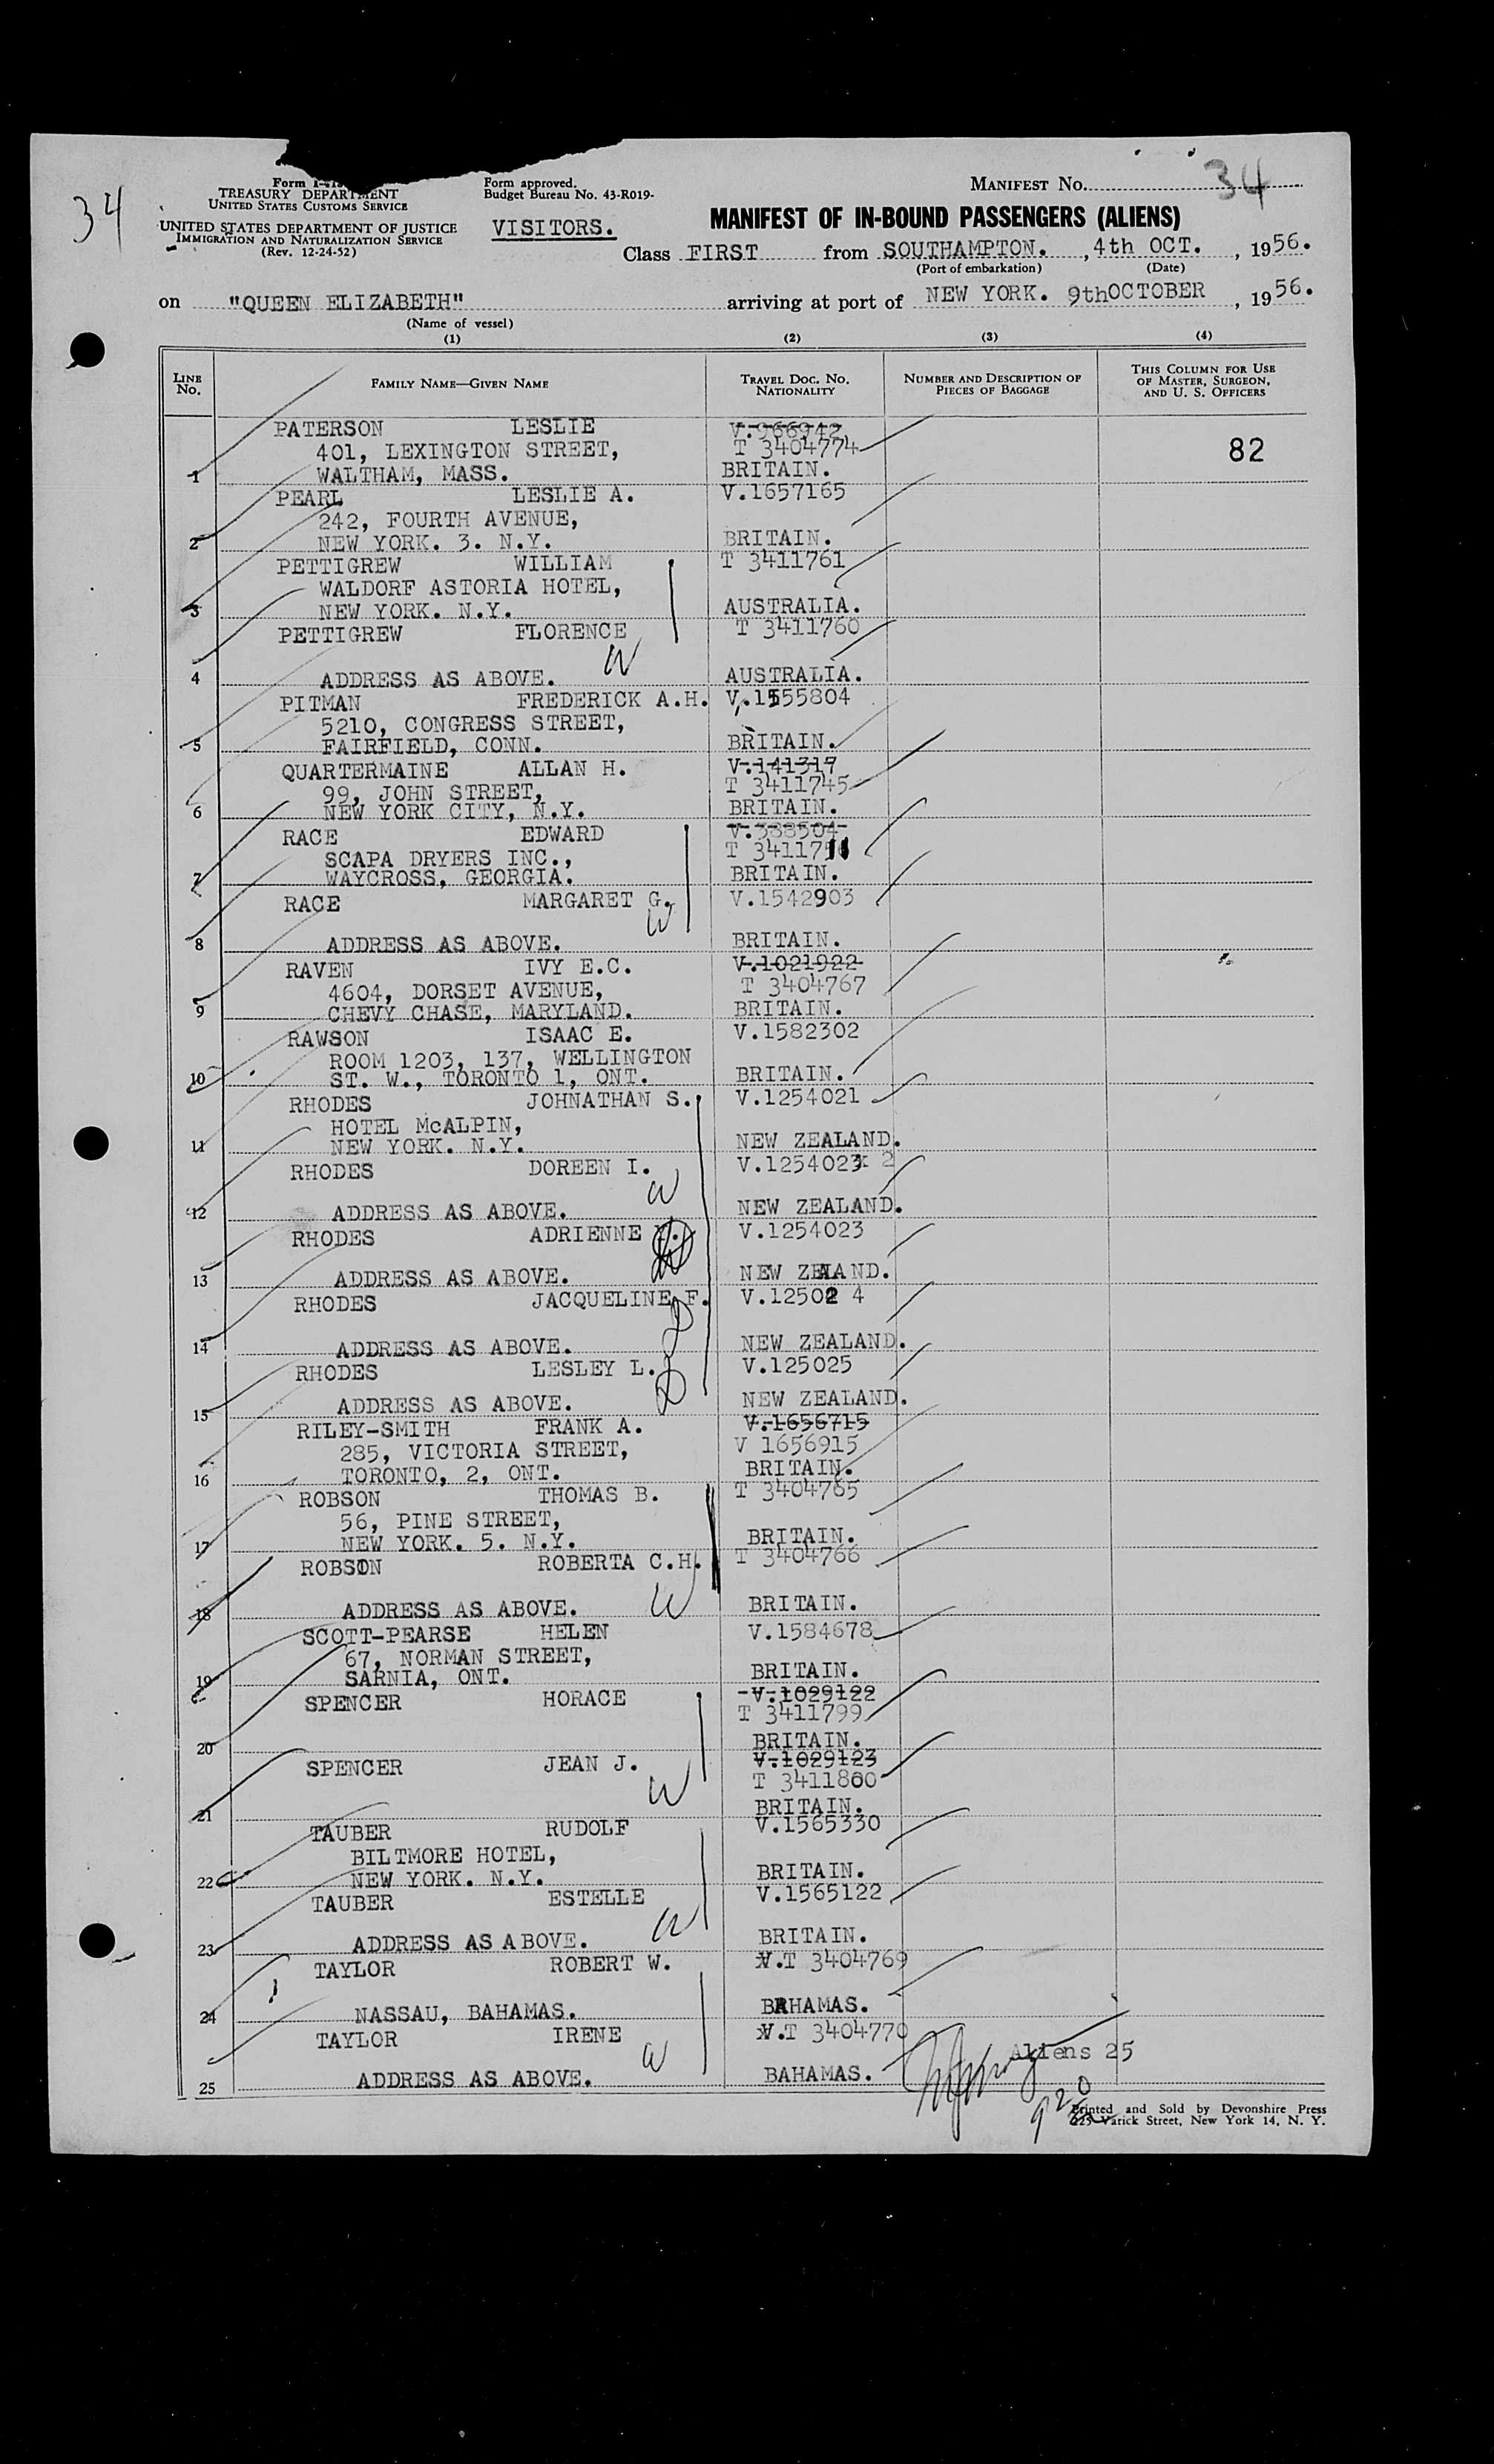 34
Form I-
TREASURY DEPARTMENT
UNITED STATES CUSTOMS SERVICE
UNITED STATES DEPARTMENT OF JUSTICE
IMMIGRATION AND NATURALIZATION SERVICE
(Rev. 12-24-52)
Form approved.
Budget Bureau No. 43-R019-
VISITORS.
MANIFEST NO. 34
MANIFEST OF IN-BOUND PASSENGERS (ALIENS)
Class FIRST from SOUTHAMPTON. , 4th OCT. , 1956.
(Port of embarkation) (Date)
on "QUEEN ELIZABETH" arriving at port of NEW YORK. 9thOCTOBER , 1956.
(Name of vessel)
(1) (2) (3) (4)
LINE NO. FAMILY NAME—GIVEN NAME TRAVEL DOC. NO. NATIONALITY NUMBER AND DESCRIPTION OF PIECES OF BAGGAGE THIS COLUMN FOR USE OF MASTER, SURGEON, AND U. S. OFFICERS
PATERSON LESLIE V.966942
401, LEXINGTON STREET, T 3404774 82
1 WALTHAM, MASS. BRITAIN.
PEARL LESLIE A. V.1657165
242, FOURTH AVENUE,
2 NEW YORK. 3. N.Y. BRITAIN.
PETTIGREW WILLIAM T 3411761
WALDORF ASTORIA HOTEL,
3 NEW YORK. N.Y. AUSTRALIA.
PETTIGREW FLORENCE T 3411760
W
4 ADDRESS AS ABOVE. AUSTRALIA.
PITMAN FREDERICK A.H. V.1555804
5210, CONGRESS STREET,
5 FAIRFIELD, CONN. BRITAIN.
QUARTERMAINE ALLAN H. V.141317
99, JOHN STREET, T 3411745
6 NEW YORK CITY, N.Y. BRITAIN.
RACE EDWARD V.388504
SCAPA DRYERS INC., T 34117
7 WAYCROSS, GEORGIA. BRITAIN.
RACE MARGARET G. V.1542903
W
8 ADDRESS AS ABOVE. BRITAIN.
RAVEN IVY E.C. V.1021922
4604, DORSET AVENUE, T 3404767
9 CHEVY CHASE, MARYLAND. BRITAIN.
RAWSON ISAAC E. V.1582302
ROOM 1203, 137, WELLINGTON
10 ST. W., TORONTO 1, ONT. BRITAIN.
RHODES JOHNATHAN S. V.1254021
HOTEL McALPIN,
11 NEW YORK. N.Y. NEW ZEALAND.
RHODES DOREEN I. V.1254023 2
W
12 ADDRESS AS ABOVE. NEW ZEALAND.
RHODES ADRIENNE V.1254023
13 ADDRESS AS ABOVE. NEW ZEALAND.
RHODES JACQUELINE F. V.12502 4
D
14 ADDRESS AS ABOVE. NEW ZEALAND.
RHODES LESLEY L. V.125025
D
15 ADDRESS AS ABOVE. NEW ZEALAND.
RILEY-SMITH FRANK A. V.1656715
285, VICTORIA STREET, V 1656915
16 TORONTO, 2, ONT. BRITAIN.
ROBSON THOMAS B. T 3404765
56, PINE STREET,
17 NEW YORK. 5. N.Y. BRITAIN.
ROBSON ROBERTA C.H. T 3404766
W
18 ADDRESS AS ABOVE. BRITAIN.
SCOTT-PEARSE HELEN V.1584678
67, NORMAN STREET,
19 SARNIA, ONT. BRITAIN.
SPENCER HORACE V.1029122
T 3411799
20 BRITAIN.
SPENCER JEAN J. V.1029123
W T 3411800
21 BRITAIN.
TAUBER RUDOLF V.1565330
BILTMORE HOTEL,
22 NEW YORK. N.Y. BRITAIN.
TAUBER ESTELLE V.1565122
W
23 ADDRESS AS ABOVE. BRITAIN.
TAYLOR ROBERT W. V.T 3404769
24 NASSAU, BAHAMAS. BAHAMAS.
TAYLOR IRENE V.T 3404770
W Aliens 25
25 ADDRESS AS ABOVE. BAHAMAS.
Printed and Sold by Devonshire Press
225 Varick Street, New York 14, N. Y.